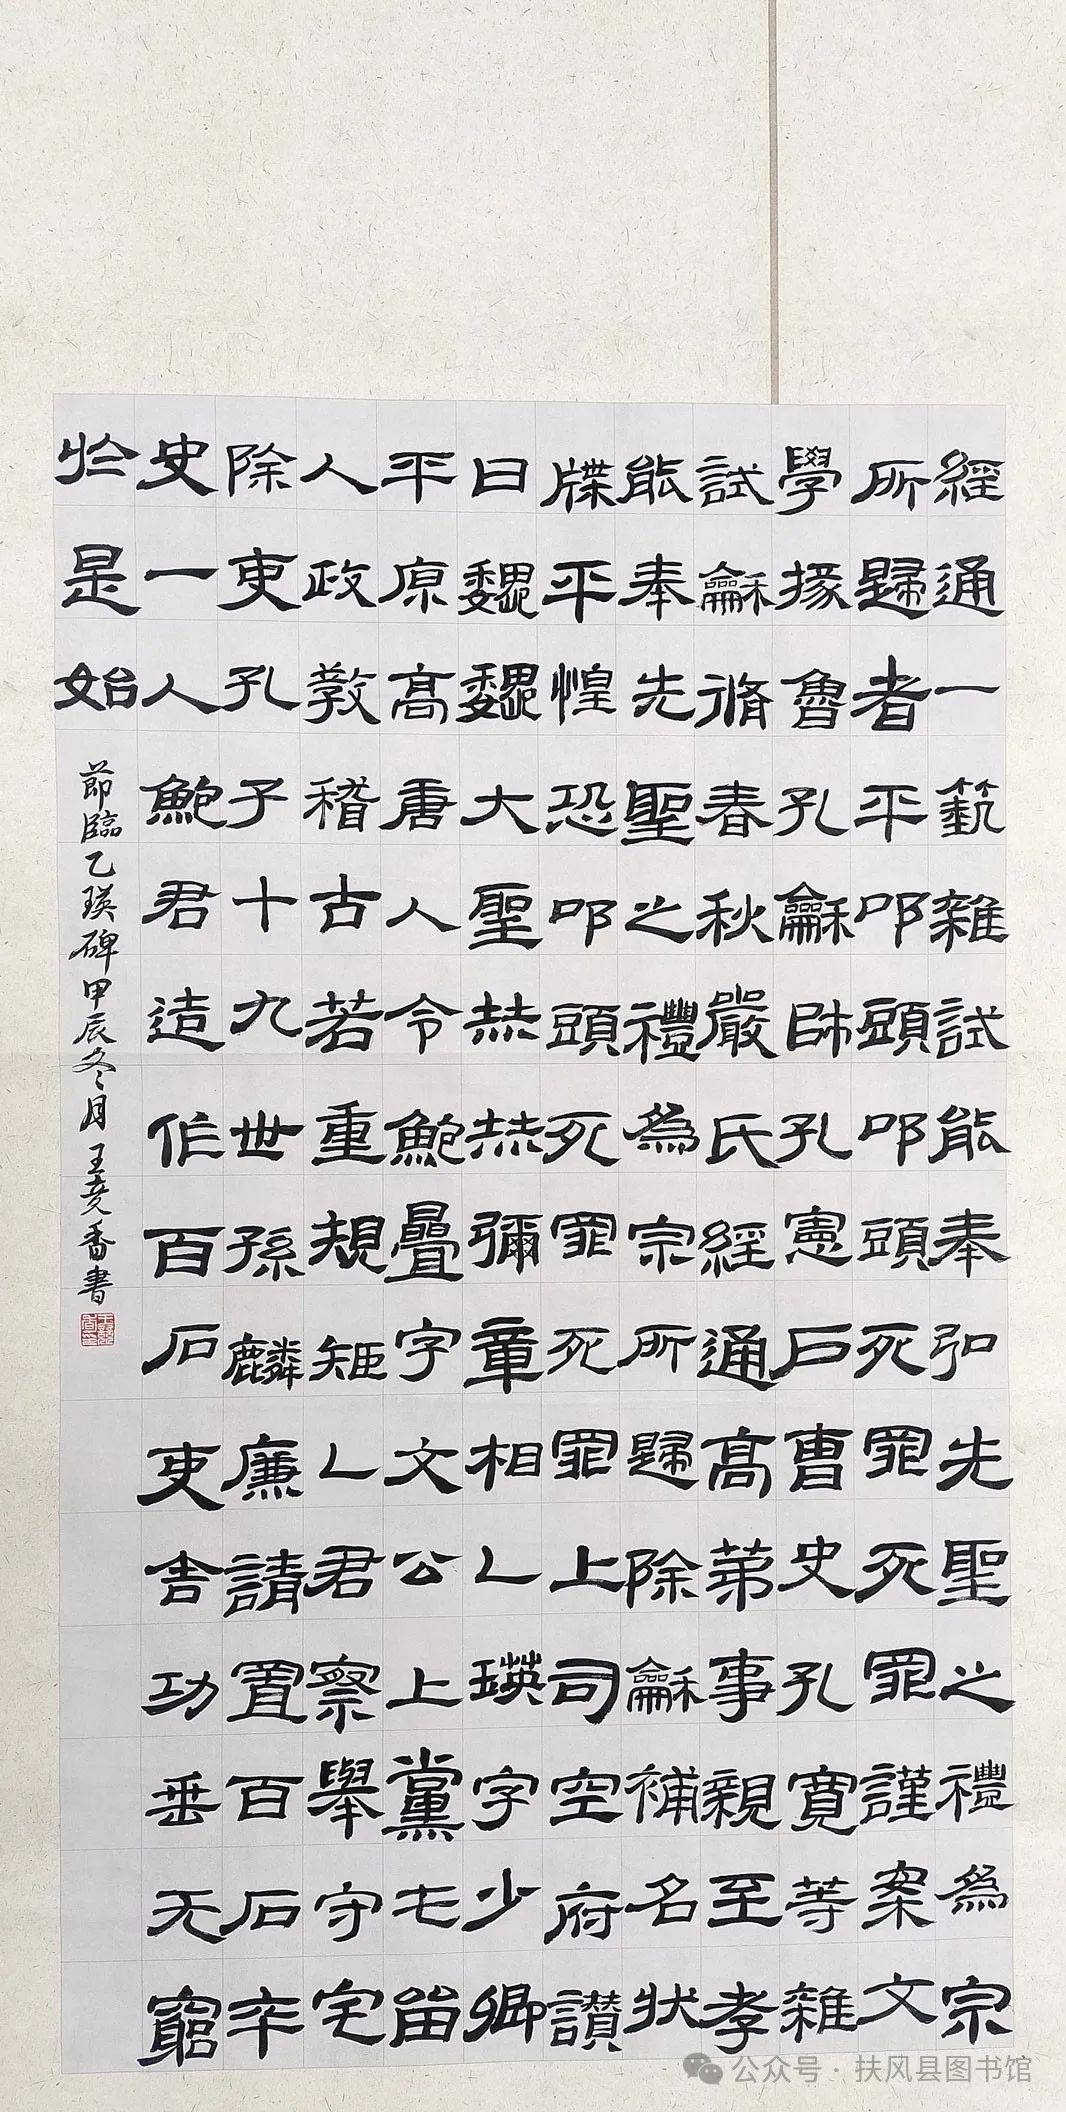 經通一藝雜試能奉弘先聖之禮為宗
所歸者平叩頭叩頭死罪死罪謹案文
學掾魯孔龢師孔憲戶曹史孔寬等雜
試龢脩春秋嚴氏經通高第事親至孝
能奉先聖之禮為宗所歸除龢補名狀
牒平惶恐叩頭死罪死罪上司空府讚
曰魏魏大聖赫赫彌章相乙瑛字少卿
平原高唐人令鮑疊字文公上黨屯留
人政教稽古若重規矩乙君察舉守宅
除吏孔子十九世孫麟廉請置百石卒
史一人鮑君造作百石吏舍功垂无窮
於是始
節臨乙瑛碑甲辰冬月王香書
公众号·扶风县图书馆